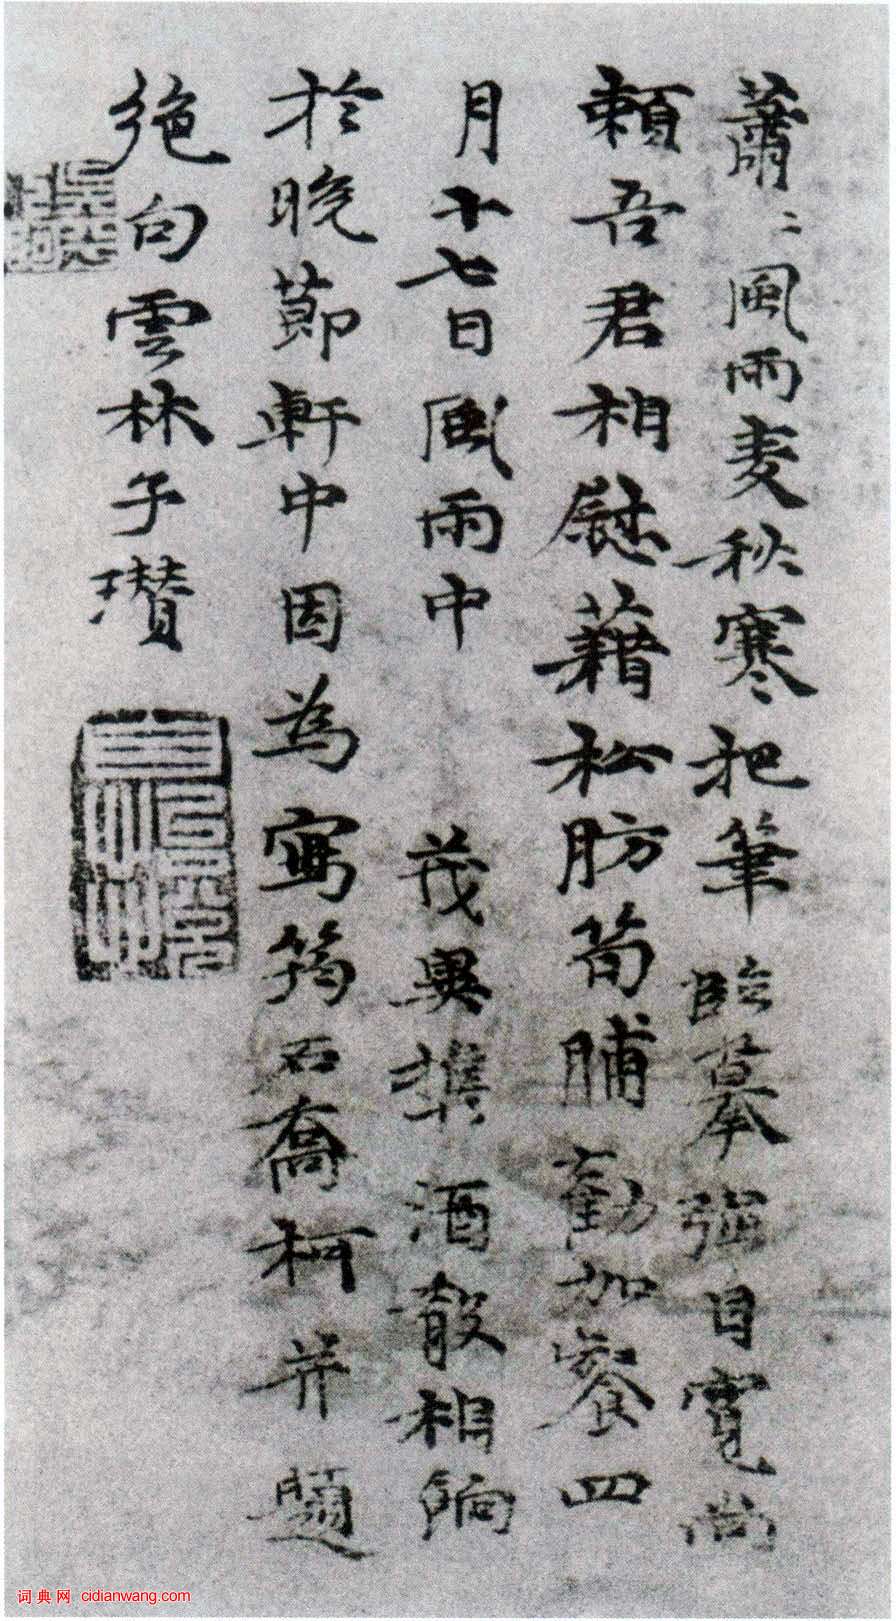 蕭〻風雨麦秋寒把筆臨摹強自寬尚
賴吾君相慰藉松肪筍脯勸加餐四
月十七日風雨中　茂異携酒殽相餉
於晚節軒中因為寫筠石喬柯并題
絶句雲林子瓚
词典网 cidianwang.com